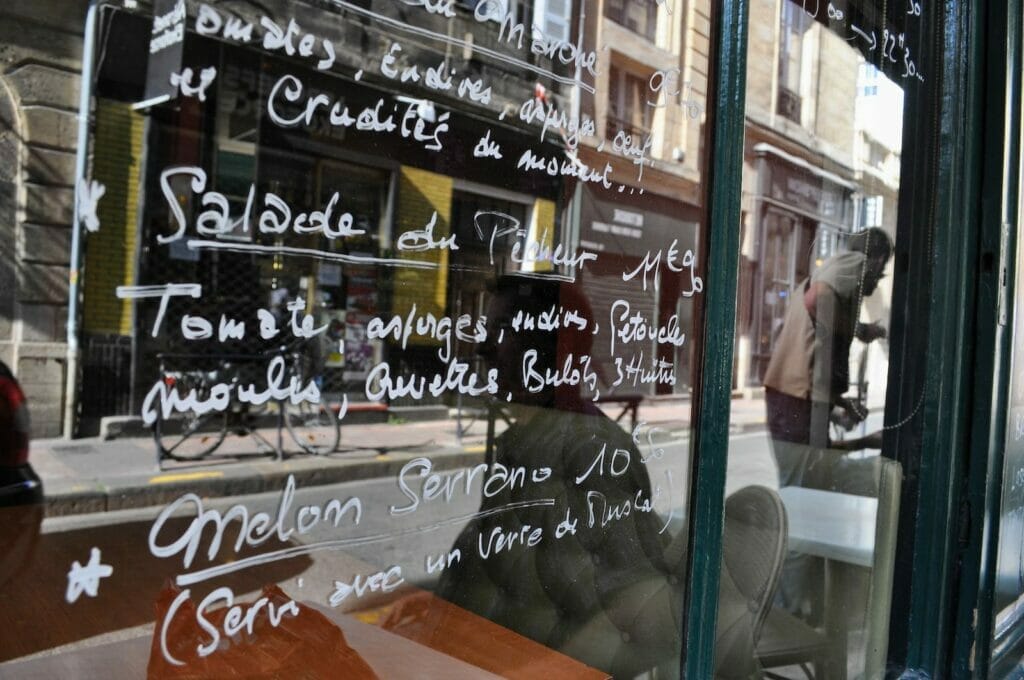 du Marché 9€70
Tomates, Endives, asperges, œuf,
et Crudités du moment...
Salade du Pêcheur 11€90
Tomate, asperges, endives, Pétoncles
moules, Crevettes, Bulots, 3 Huitres
* Melon Serrano 10€50
(Servi avec un verre de Muscat)
→ 22H30...